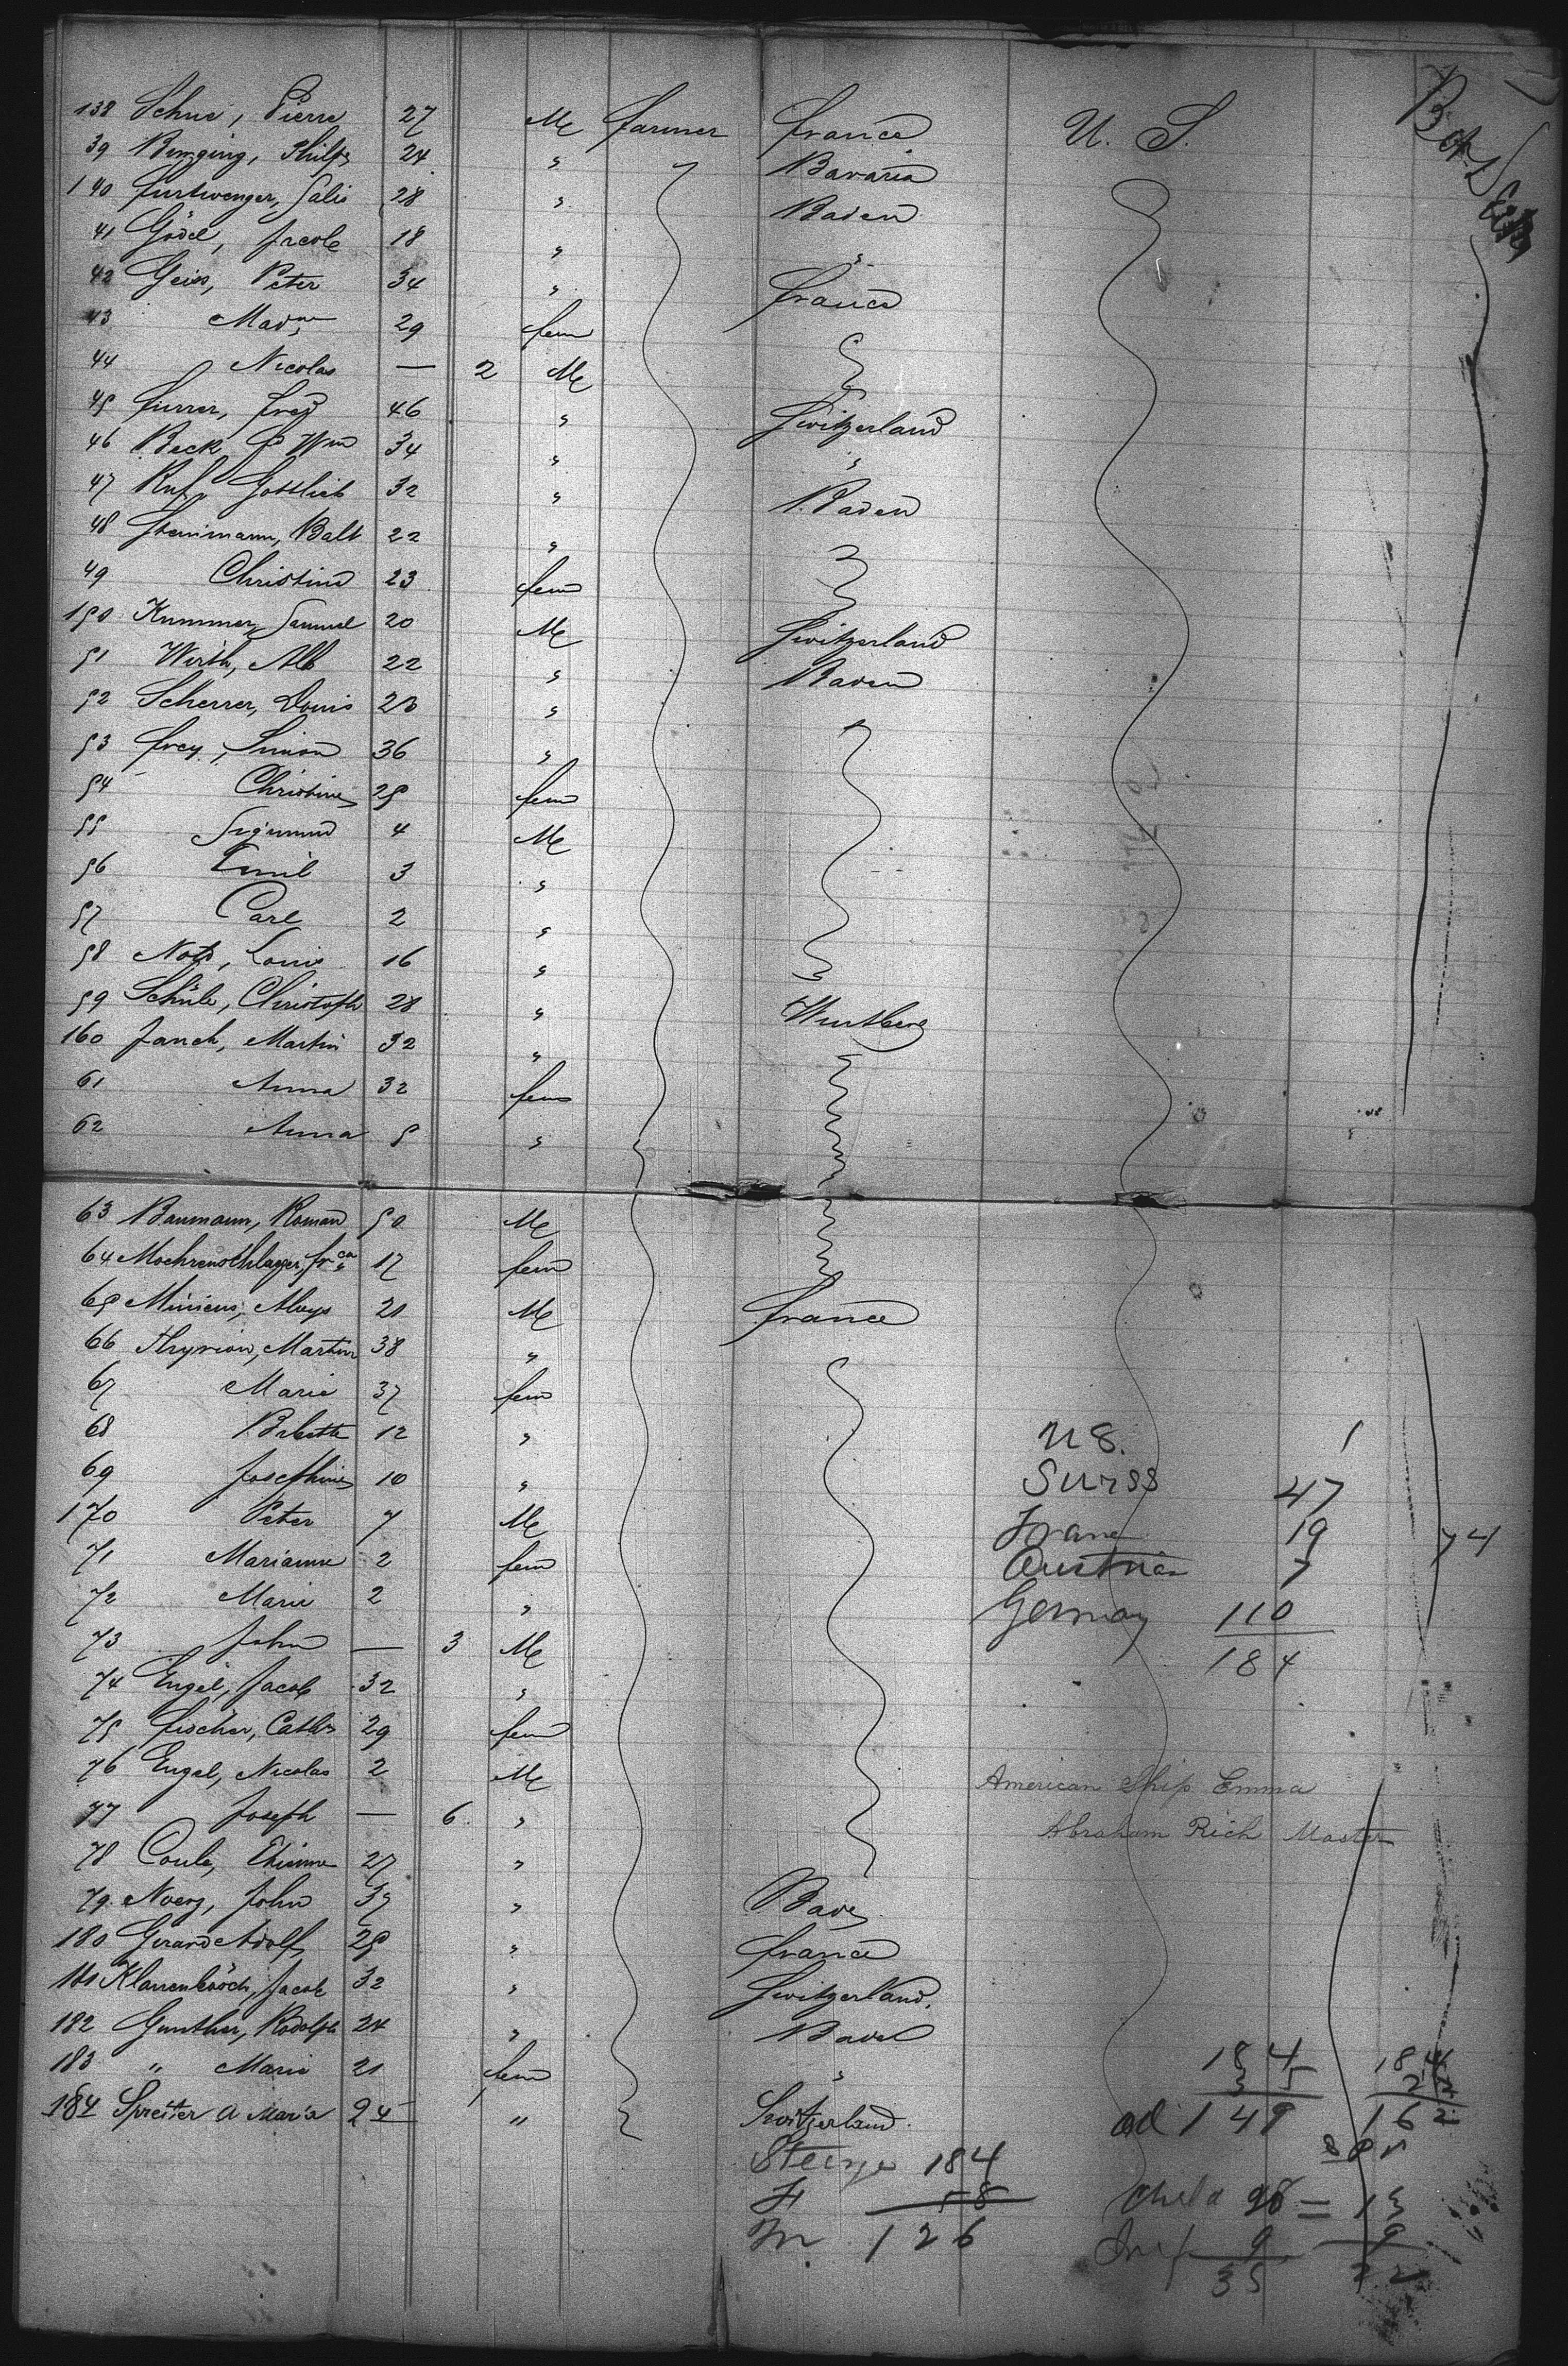 138 Schué, Pierre 27 Me farmer France U. S.
39 Philip 24 " Bavaria
140 Furtwenger, Salis 28 " Baden
41 Gödel, Jacob 18 " "
42 Geiss, Peter 34 " France
43 Mad 29 fem
44 Nicolas — 2 Me
45 Furrer, Fred 46 " Switzerland
46 Beck Wm 34 " "
47 Ruf, Gottlieb 32 " Baden
48 Steinmann, Balt 22 "
49 Christina 23 fem
150 Kummer, Samuel 20 Me Switzerland
51 Wirth, Alb 22 " Baden
52 Scherrer, Louis 23 "
53 Frey, Simon 36 "
54 Christine 25 fem
55 Sigmund 4 Me
56 Emil 3 "
57 Carl 2 "
58 Louis 16 "
59 Schüle, Christoph 28 " Wurtberg
160 Janch, Martin 32 "
61 Anna 32 fem
62 Anna 5 "
63 Baumann, Roman 50 Me
64 Moehrenschlager, Frca 17 fem
65 Aloys 21 Me France
66 Thyrion, Martin 38 "
67 Marie 37 fem
68 Babette 12 " U S. 1
69 Josephine 10 " Suiss 47
170 Peter 7 Me Franc 19 74
71 Marianne 2 fem Austria 7
72 Marie 2 " Germay 110
73 John — 3 Me 184
74 Engel, Jacob 32 "
75 Fischer, Cath 29 fem
76 Engel, Nicolas 2 Me American Ship Emma
77 Joseph — 6 " Abraham Rich Master
78 Coule, Etienne 27 "
79 Noerg, John 35 " Baden
180 Gerard Adolf 25 " France
181 Klarenbööch, Jacob 32 " Switzerland.
182 Gunther, Rodolph 24 " Baden
183 " Marie 21 fem " 184 184
184 Spreiter A Maria 24 " Switzerland 35 22
ad 149 162
Steinge 184
F 58 Child 26 = 13
M 126 Inf 9 9
35 22